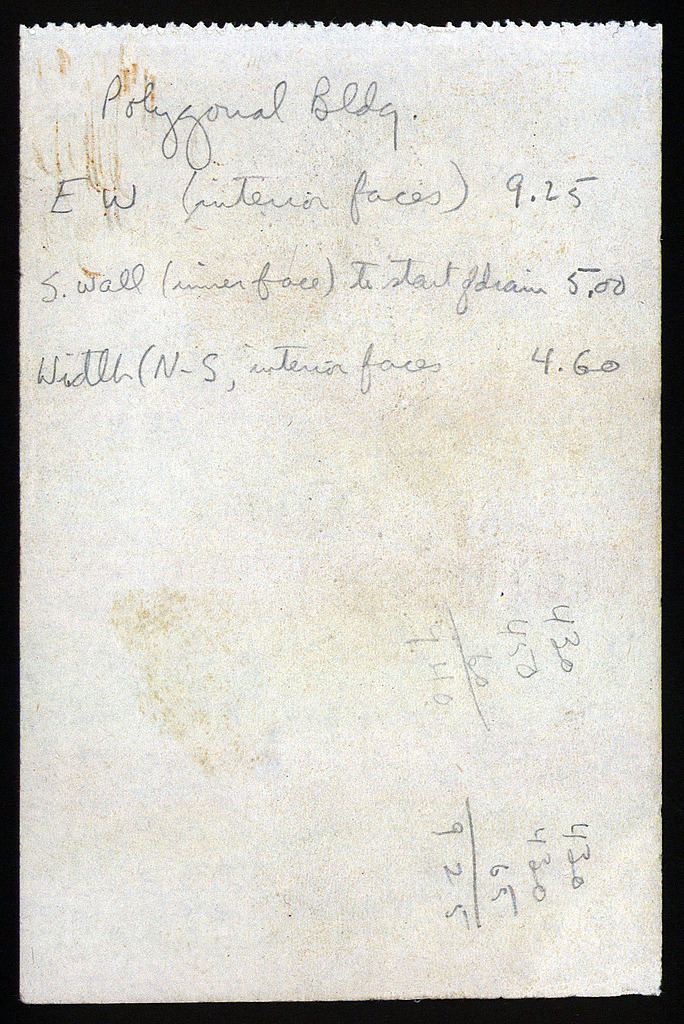 Polygonal Bldg.
E W (interior faces) 9.25
S. wall (inner face) to start of drain 5.00
Width (N-S, interior faces 4.60
430
450
60
940
430
430
65
925